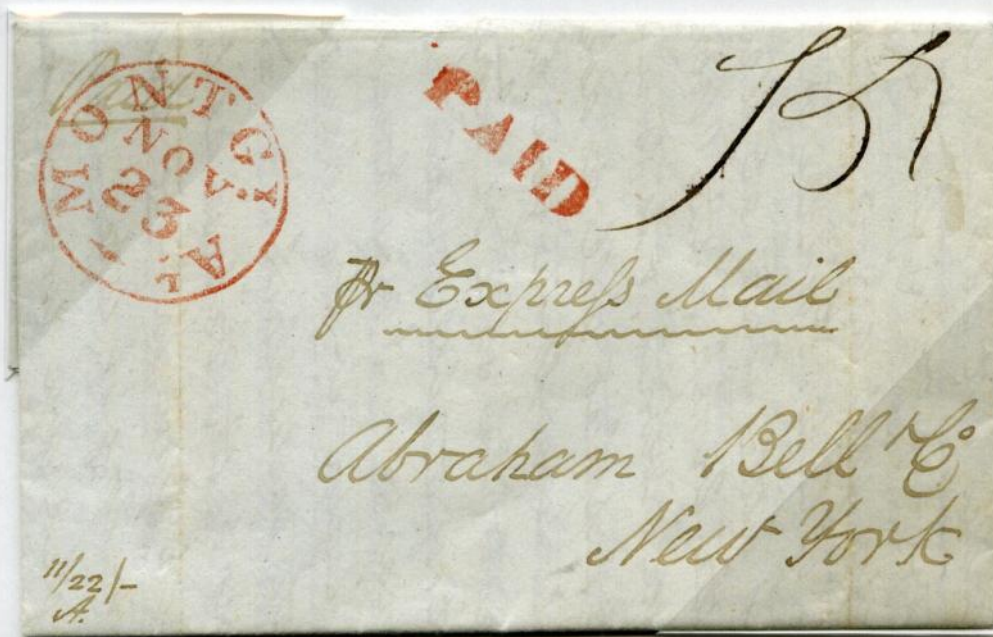 Paid
MONTGY AL.
NOV
23
PAID
pr Expreſs Mail
Abraham Bell & Co
New York
11/22/-
A.